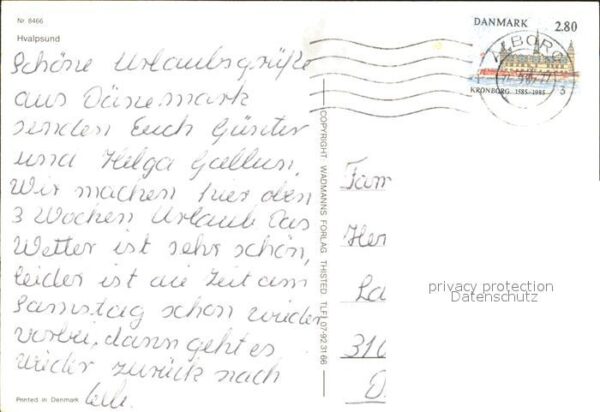 Nr 8466
Hvalpsund
Schöne Urlaubsgrüße
aus Dänemark
senden Euch Günter
und Helga Gallun.
Wir machen hier den
3 Wochen Urlaub Das
Wetter ist sehr schön,
leider ist die Zeit am
Samstag schon wieder
vorbei, dann geht es
wieder zurück nach
Celle.
Printed in Denmark
COPYRIGHT WADMANNS FORLAG THISTED TLF. 07-92 31 66
DANMARK 2.80
KRONBORG 1585-1985
ALBORG
Fam
Her
La
310
privacy protection
Datenschutz